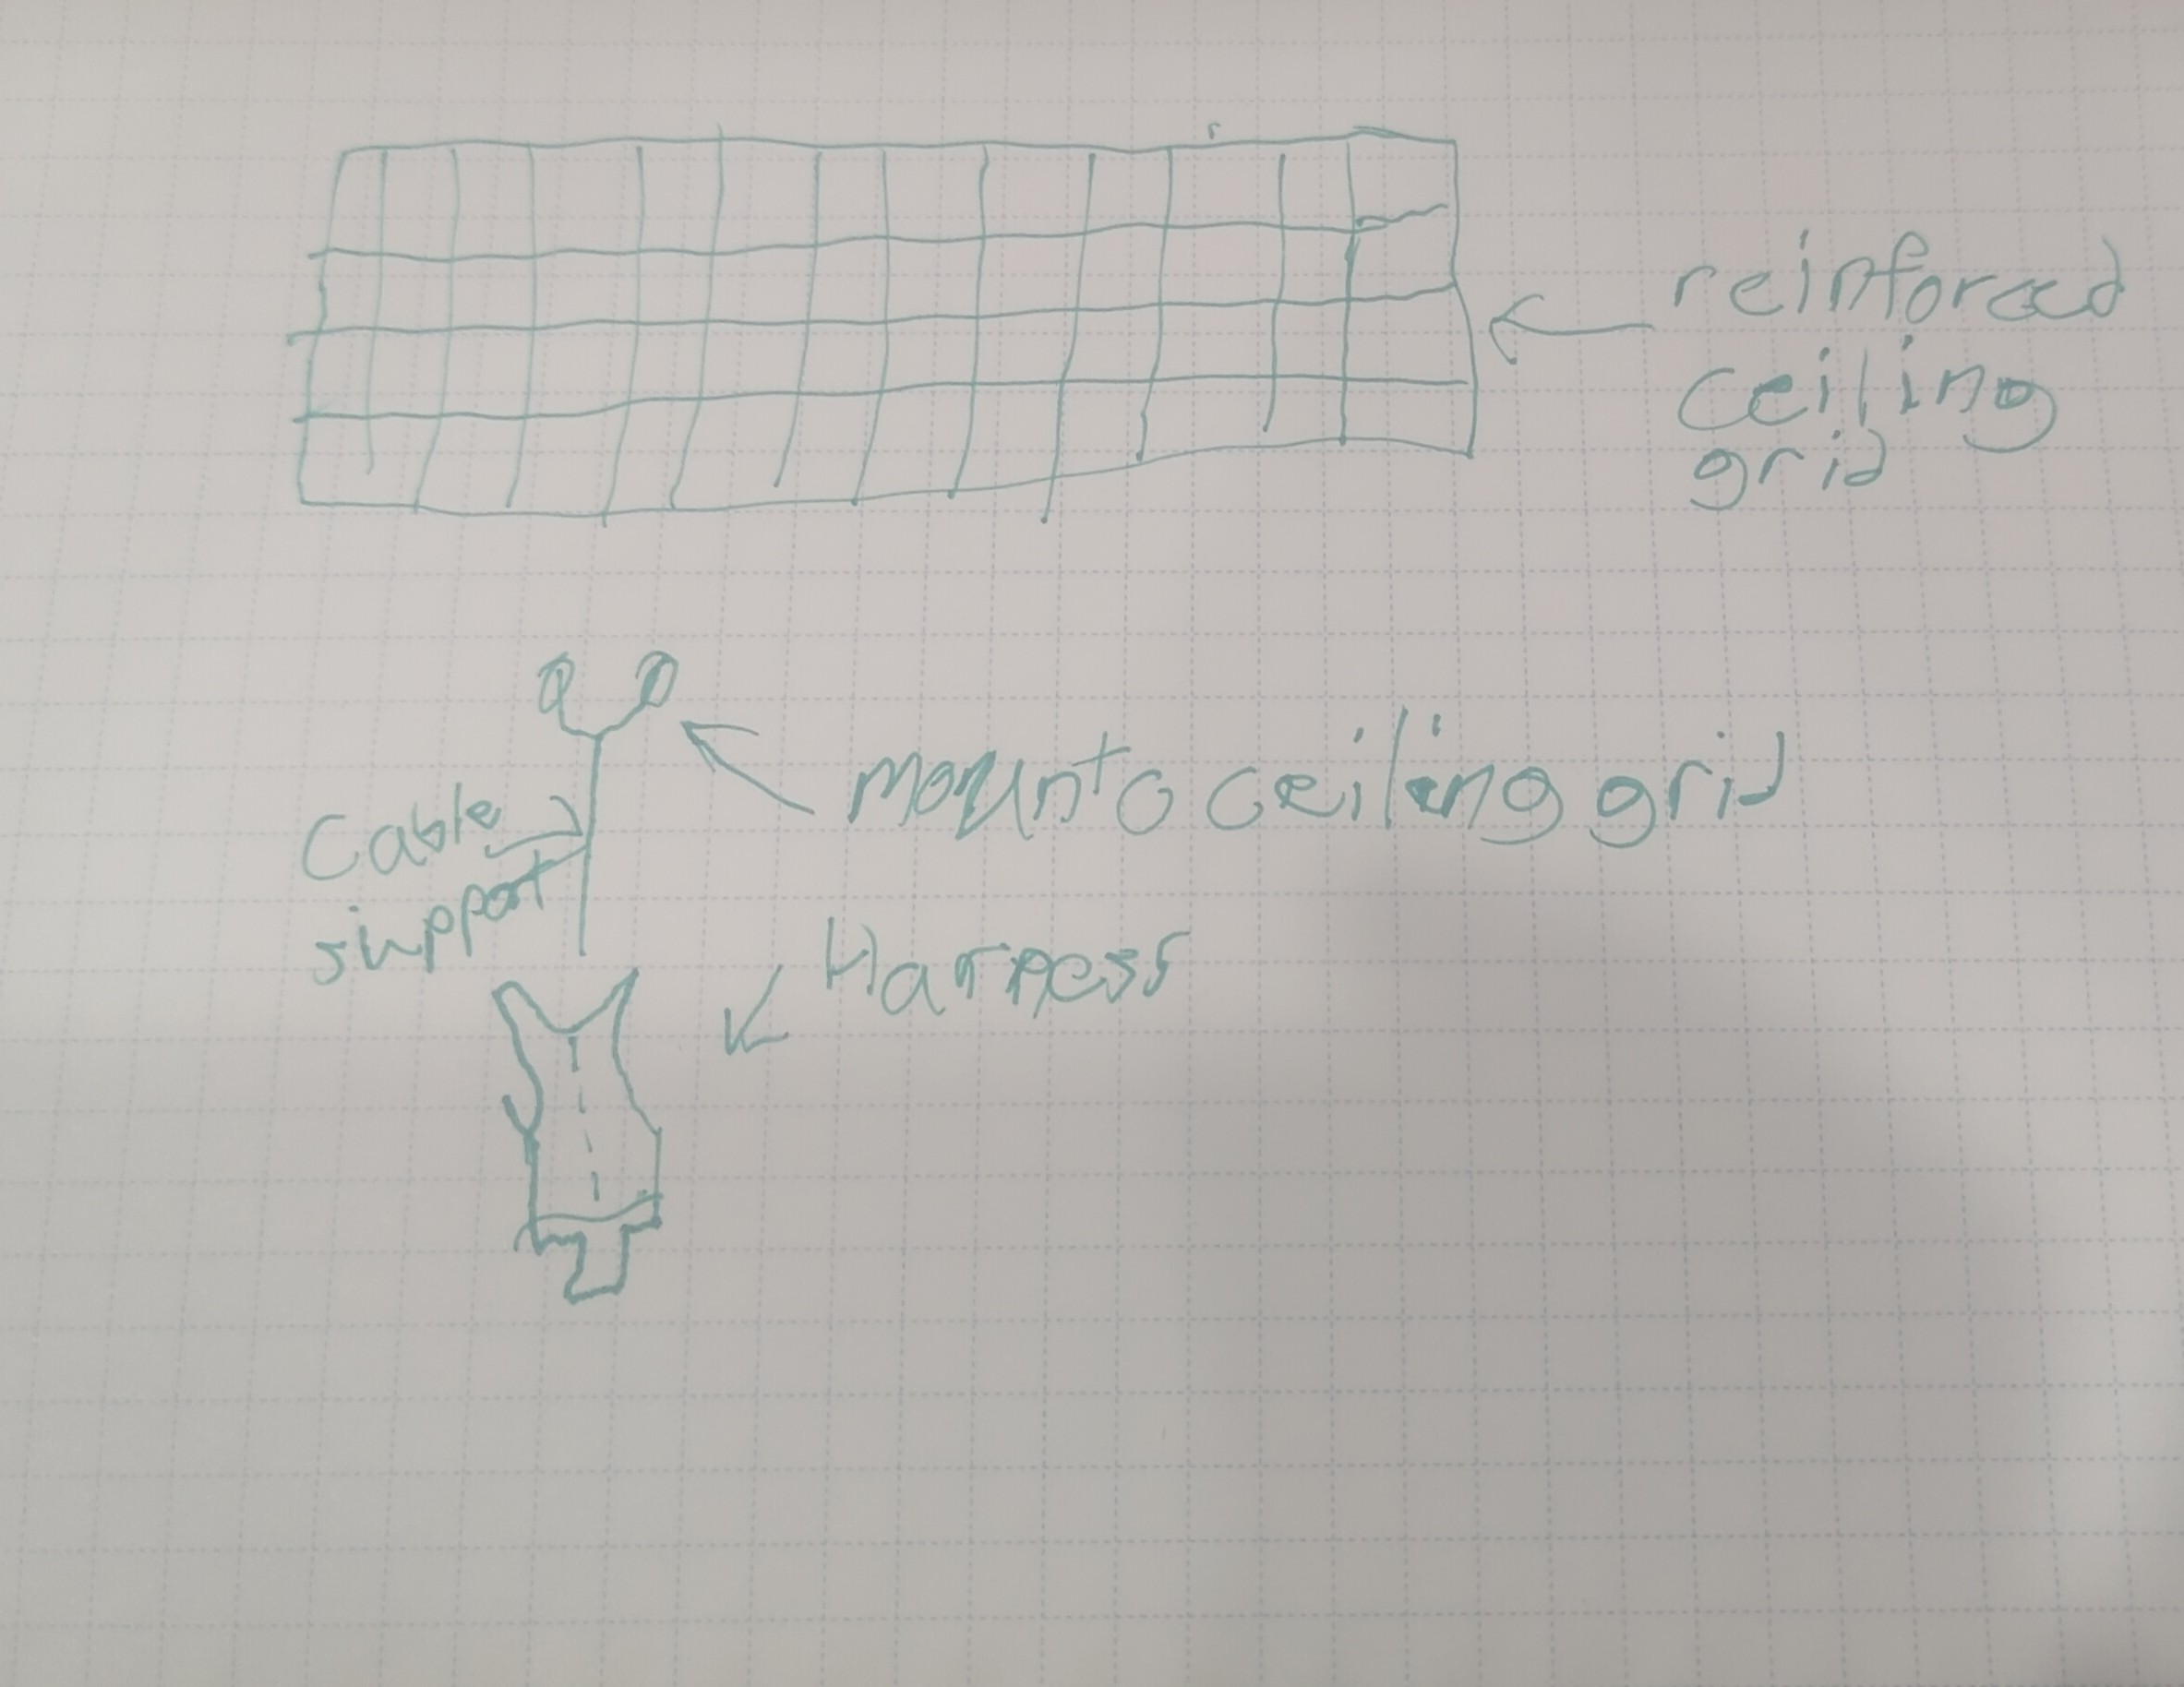 reinforced
ceiling
grid
mount to ceiling grid
Cable
support
Harness